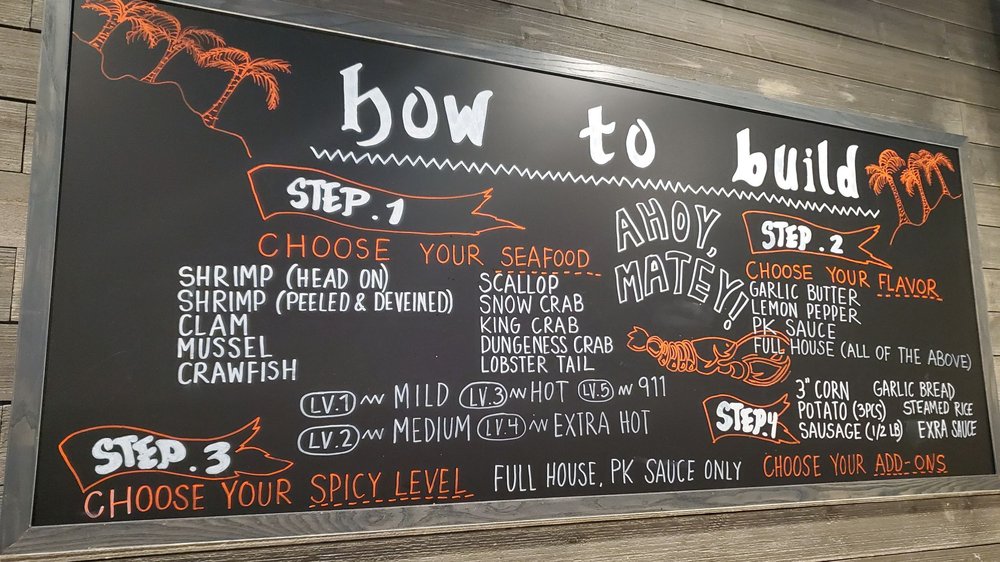 how to build
STEP.1
CHOOSE YOUR SEAFOOD
SHRIMP (HEAD ON)
SHRIMP (PEELED & DEVEINED)
CLAM
MUSSEL
CRAWFISH
SCALLOP
SNOW CRAB
KING CRAB
DUNGENESS CRAB
LOBSTER TAIL
AHOY,
MATEY!
STEP.2
CHOOSE YOUR FLAVOR
GARLIC BUTTER
LEMON PEPPER
PK SAUCE
FULL HOUSE (ALL OF THE ABOVE)
STEP.3
CHOOSE YOUR SPICY LEVEL
LV.1 ~ MILD LV.3 ~ HOT LV.5 ~ 911
LV.2 ~ MEDIUM LV.4 ~ EXTRA HOT
FULL HOUSE, PK SAUCE ONLY
STEP.4
3" CORN GARLIC BREAD
POTATO (3PCS) STEAMED RICE
SAUSAGE (1/2 LB) EXRA SAUCE
CHOOSE YOUR ADD-ONS